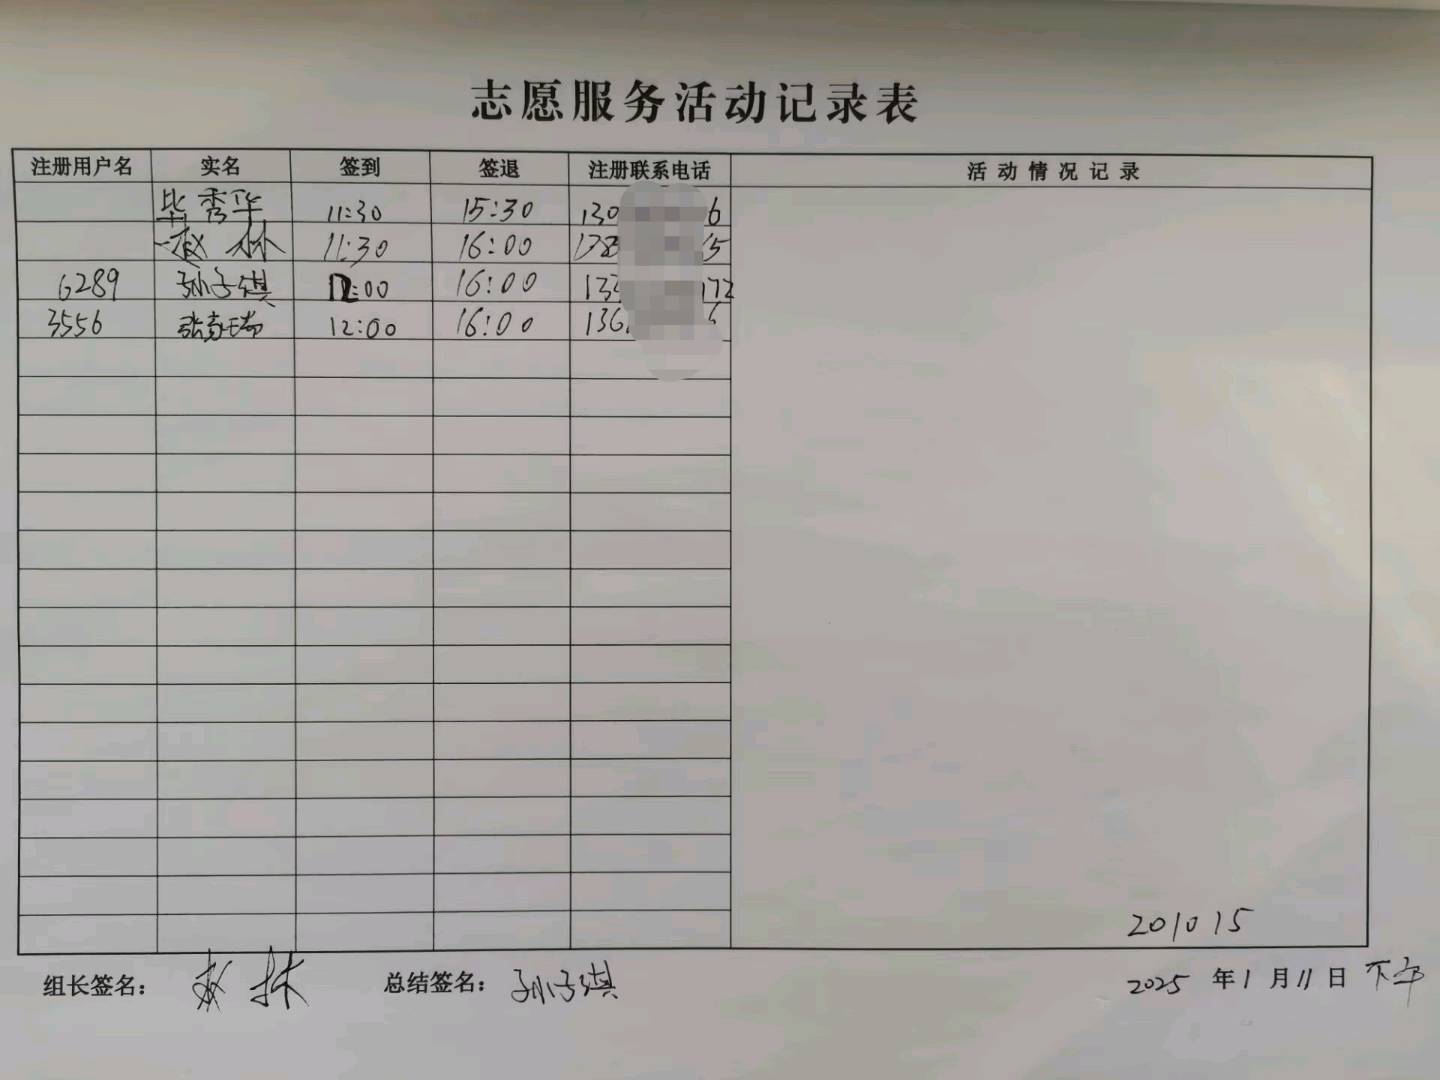 志愿服务活动记录表
注册用户名 实名 签到 签退 注册联系电话 活动情况记录
毕秀华 11:30 15:30 130 6
赵林 11:30 16:00 138 5
6289 孙子淇 12:00 16:00 133 172
3556 12:00 16:00 136
201015
组长签名： 赵林 总结签名： 孙子淇 2025 年 1 月 11 日 下午